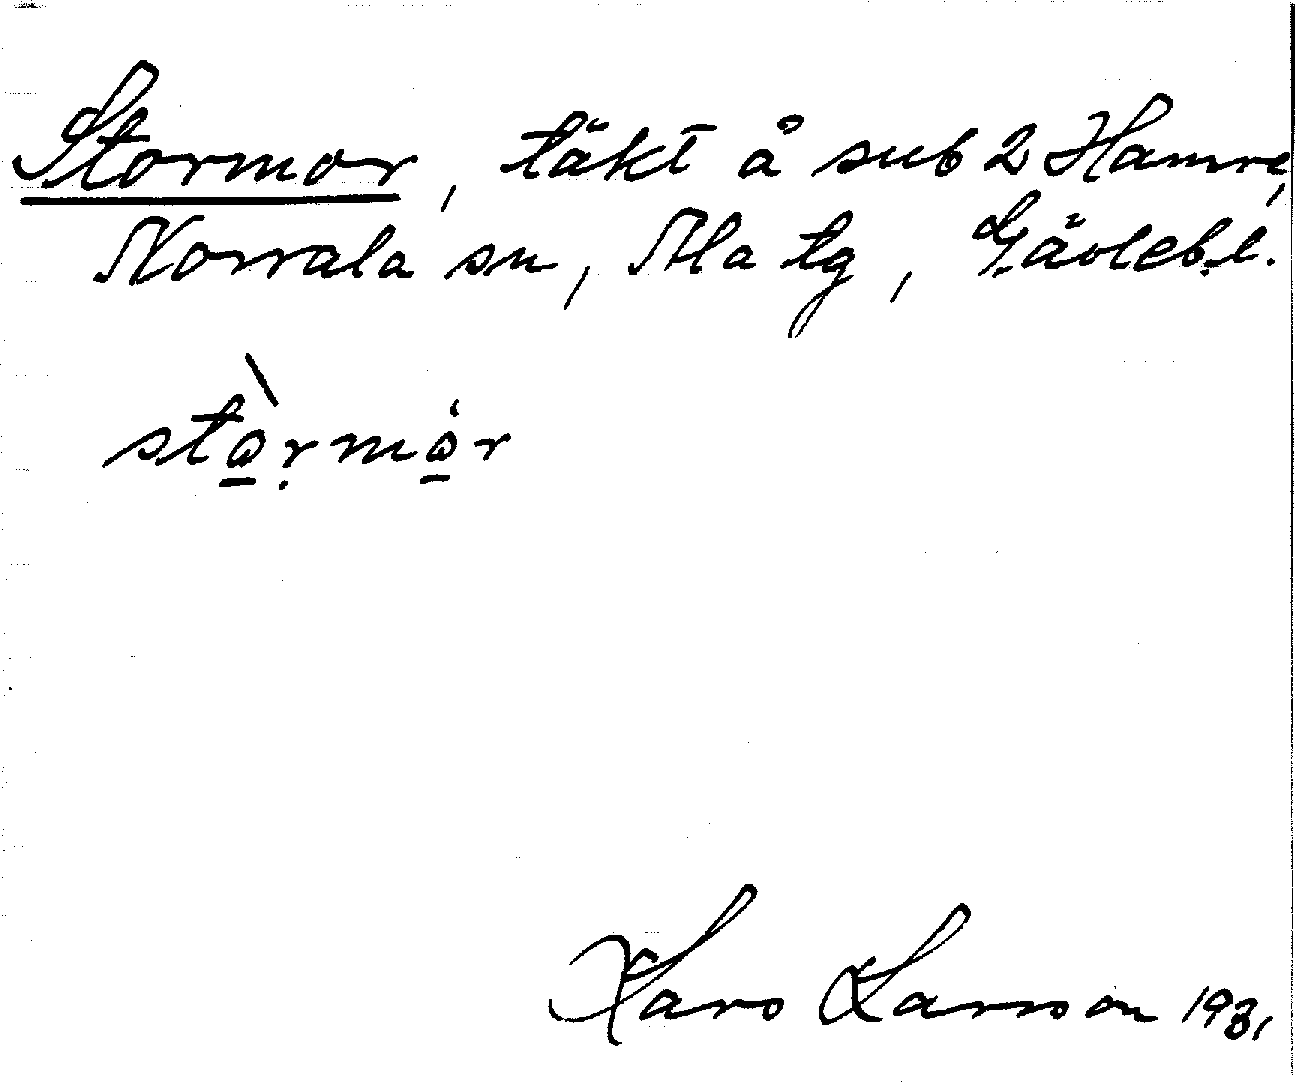 Stormor, täkt å sub 2 Hamre,
Norrala sn, Ala tg, Gävleb.l.
stò̱ṛmo̱r
Hans Larsson 1931